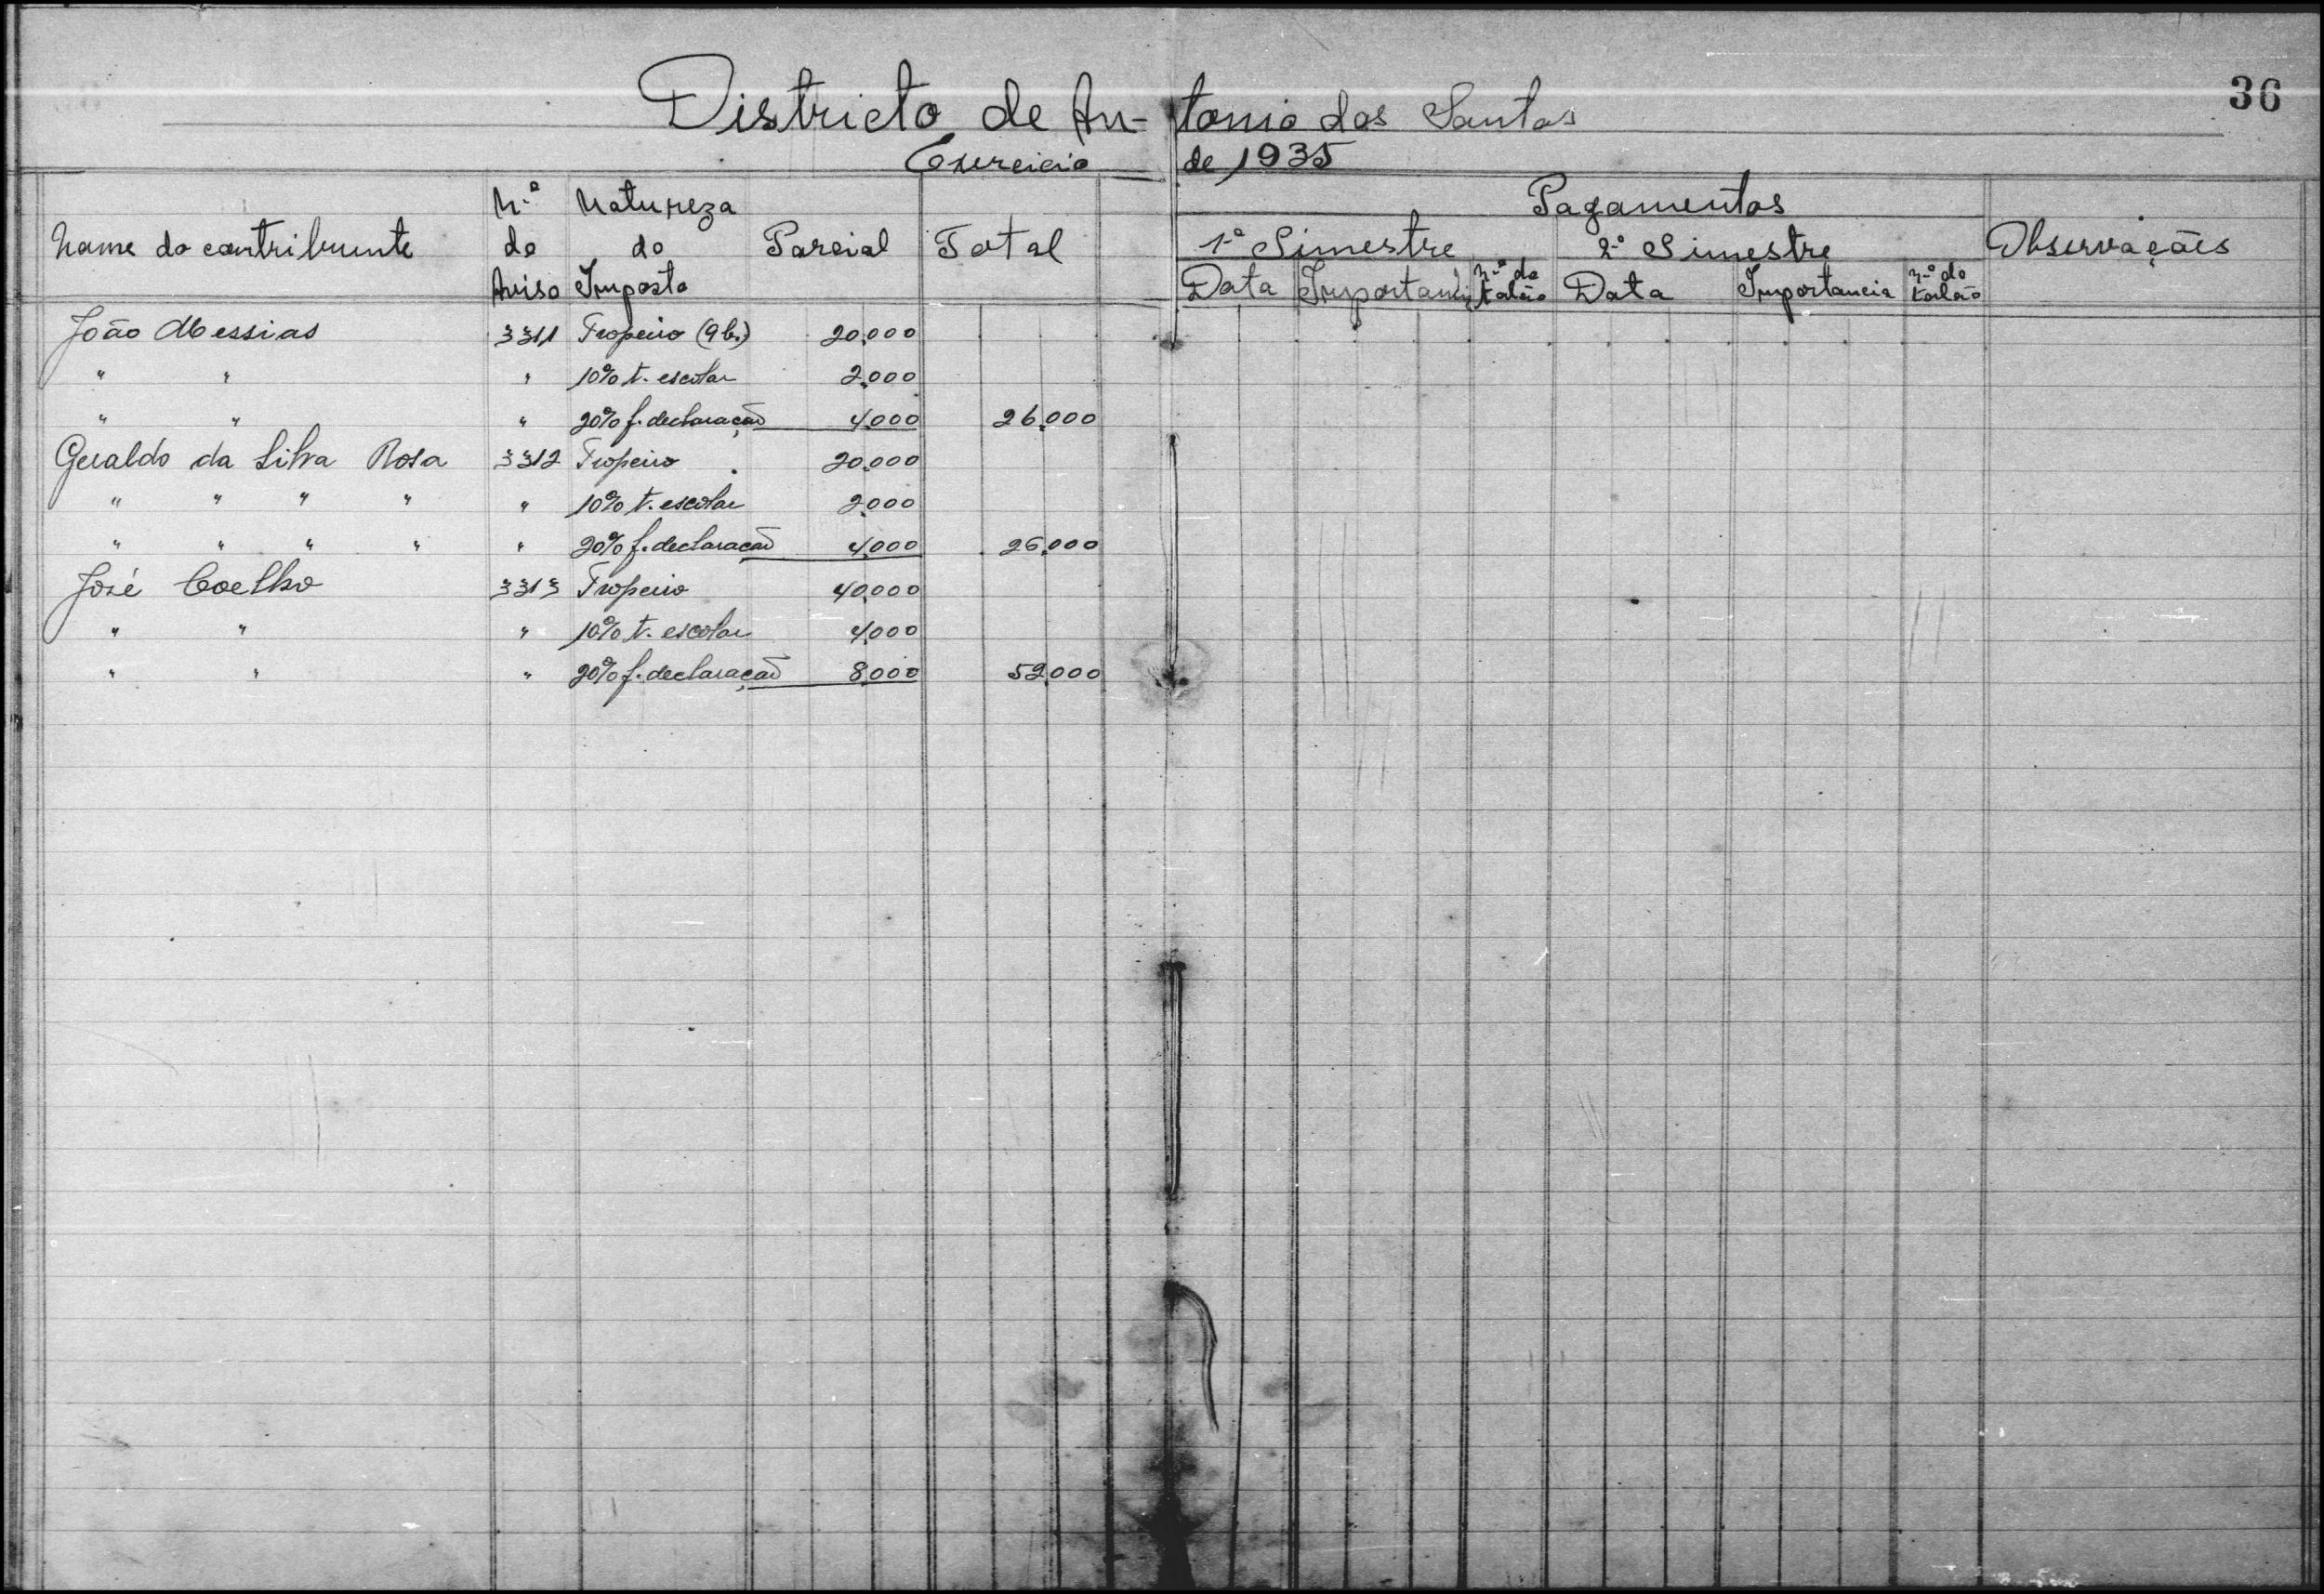 36
Districto de Antonio dos Santos
Exercicio de 1935
Nome do contribuinte N.º do Aviso Natureza do Imposto Parcial Total Pagamentos Observações
1º Simestre 2º Simestre
Data Importancia n.º do talão Data Importancia n.º do talão
João Messias 3311 Tropeiro (9 b.) 20.000
" " " 10% t. escolar 2.000
" " " 20% f. declaração 4.000 26.000
Geraldo da Silva Rosa 3312 Tropeiro 20.000
" " " " " 10% t. escolar 2.000
" " " " " 20% f. declaração 4.000 26.000
José Coelho 3313 Tropeiro 40.000
" " " 10% t. escolar 4.000
" " " 20% f. declaração 8.000 52.000